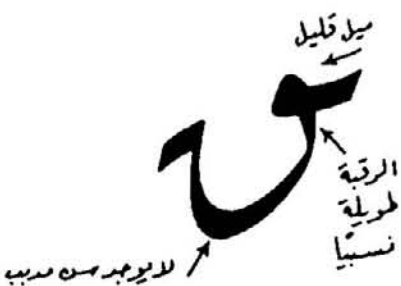 ميل قليل
الرقبة
طويلة
نسبيًا
لا يوجد سن مدبب